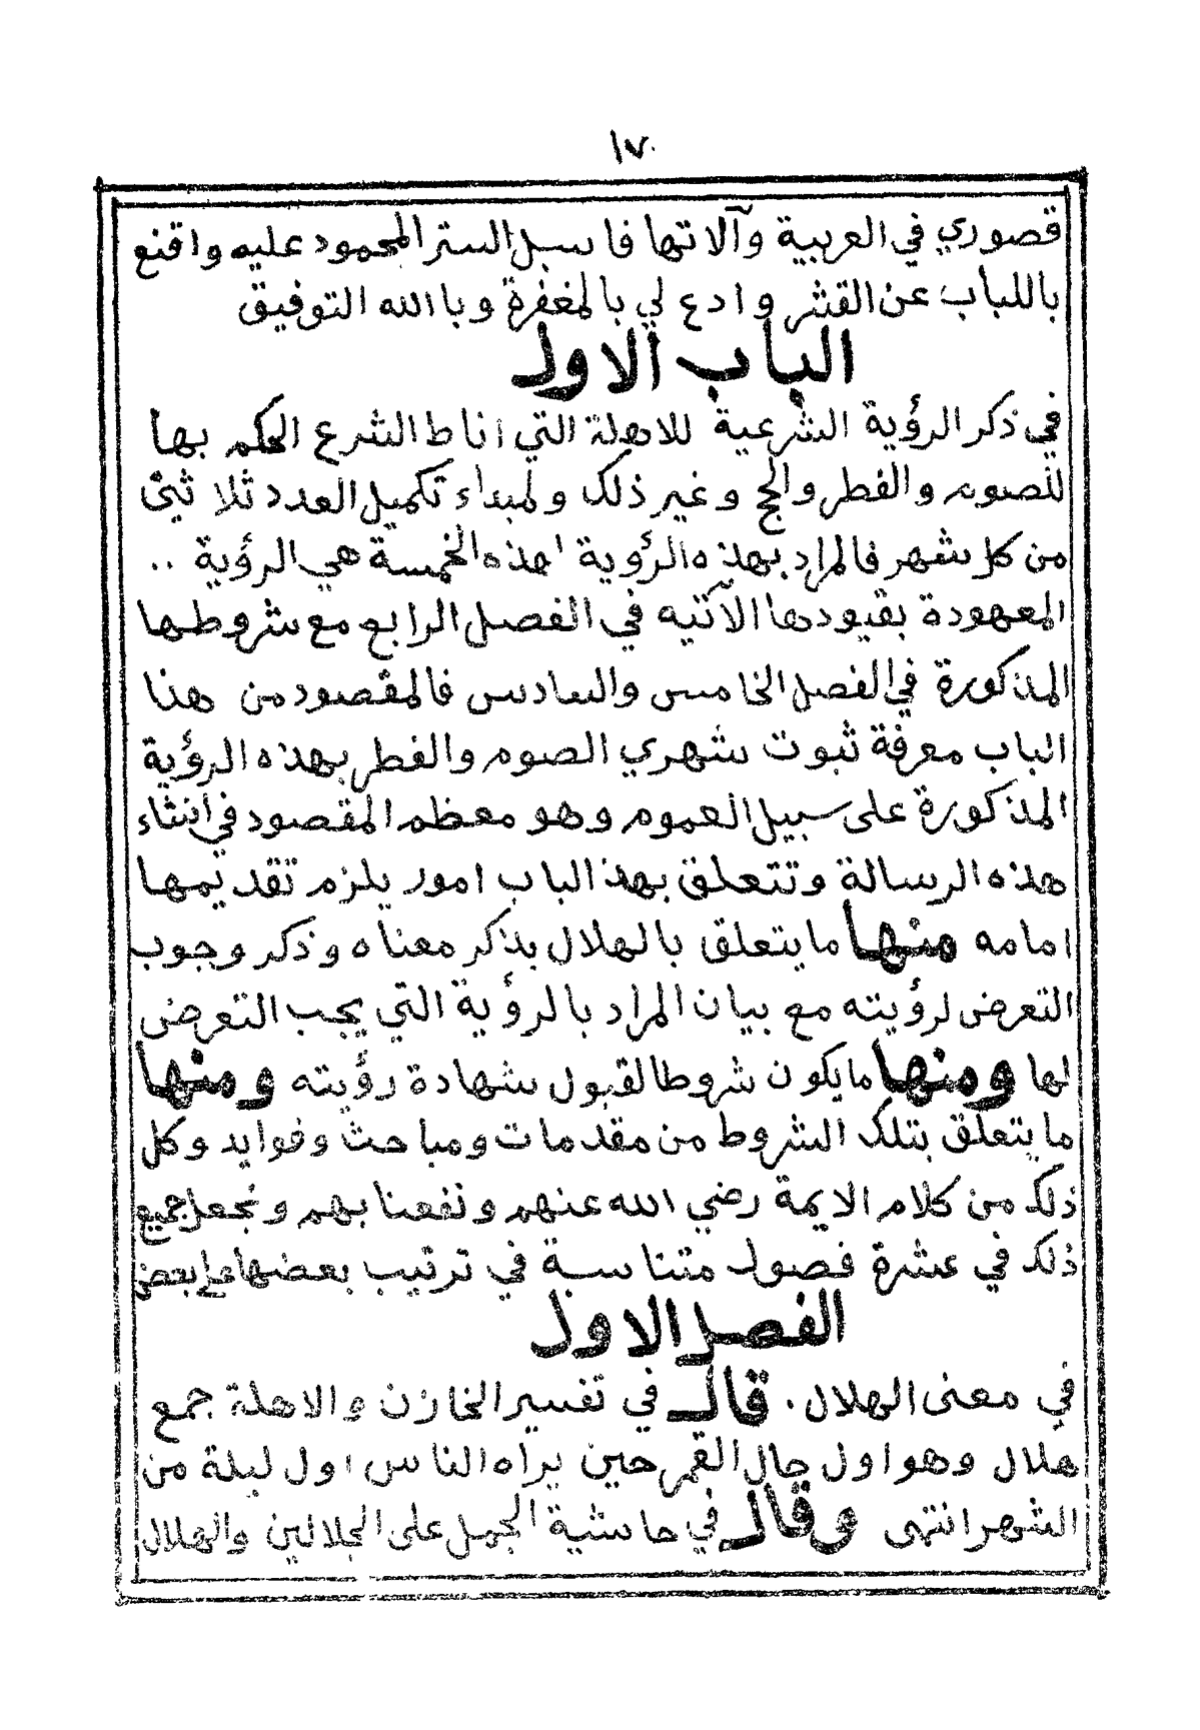 ١٧
قصوري في العربية وآلاتها فاسبل الستر المحمود عليه واقنع
باللباب عن القشر وادع لي بالمغفرة وباالله التوفيق
الباب الاول
في ذكر الرؤية الشرعية للاهلة التي اناط الشرع الحكم بها
للصوم والفطر والحج وغير ذلك ولمبداء تكميل العدد ثلاثين
من كل شهر فالمراد بهذه الرؤية لهذه الخمسة هي الرؤية ..
المعهودة بقيودها الآتيه في الفصل الرابع مع شروطها
المذكورة في الفصل الخامس والسادس فالمقصود من هذا
الباب معرفة ثبوت شهري الصوم والفطر بهذه الرؤية
المذكورة على سبيل العموم وهو معظم المقصود في أنشاء
هذه الرسالة وتتعلق بهذ الباب امور يلزم تقديمها
امامه منها ما يتعلق بالهلال بذكر معناه وذكر وجوب
التعرض لرؤيته مع بيان المراد بالرؤية التي يجب التعرض
لها ومنها ما يكون شروطا لقبول شهادة رؤيته ومنها
ما يتعلق بتلك الشروط من مقدمات ومباحث وفوايد وكل
ذلك من كلام الايمة رضي الله عنهم ونفعنا بهم ونجعل جميع
ذلك في عشرة فصول متناسبة في ترتيب بعضها على بعض
الفصل الاول
في معنى الهلال . قال في تفسير الخازن والاهلة جمع
هلال وهو اول حال القمر حين يراه الناس اول ليلة من
الشهر انتهى وقال في حاشية الجمل على الجلالين والهلال